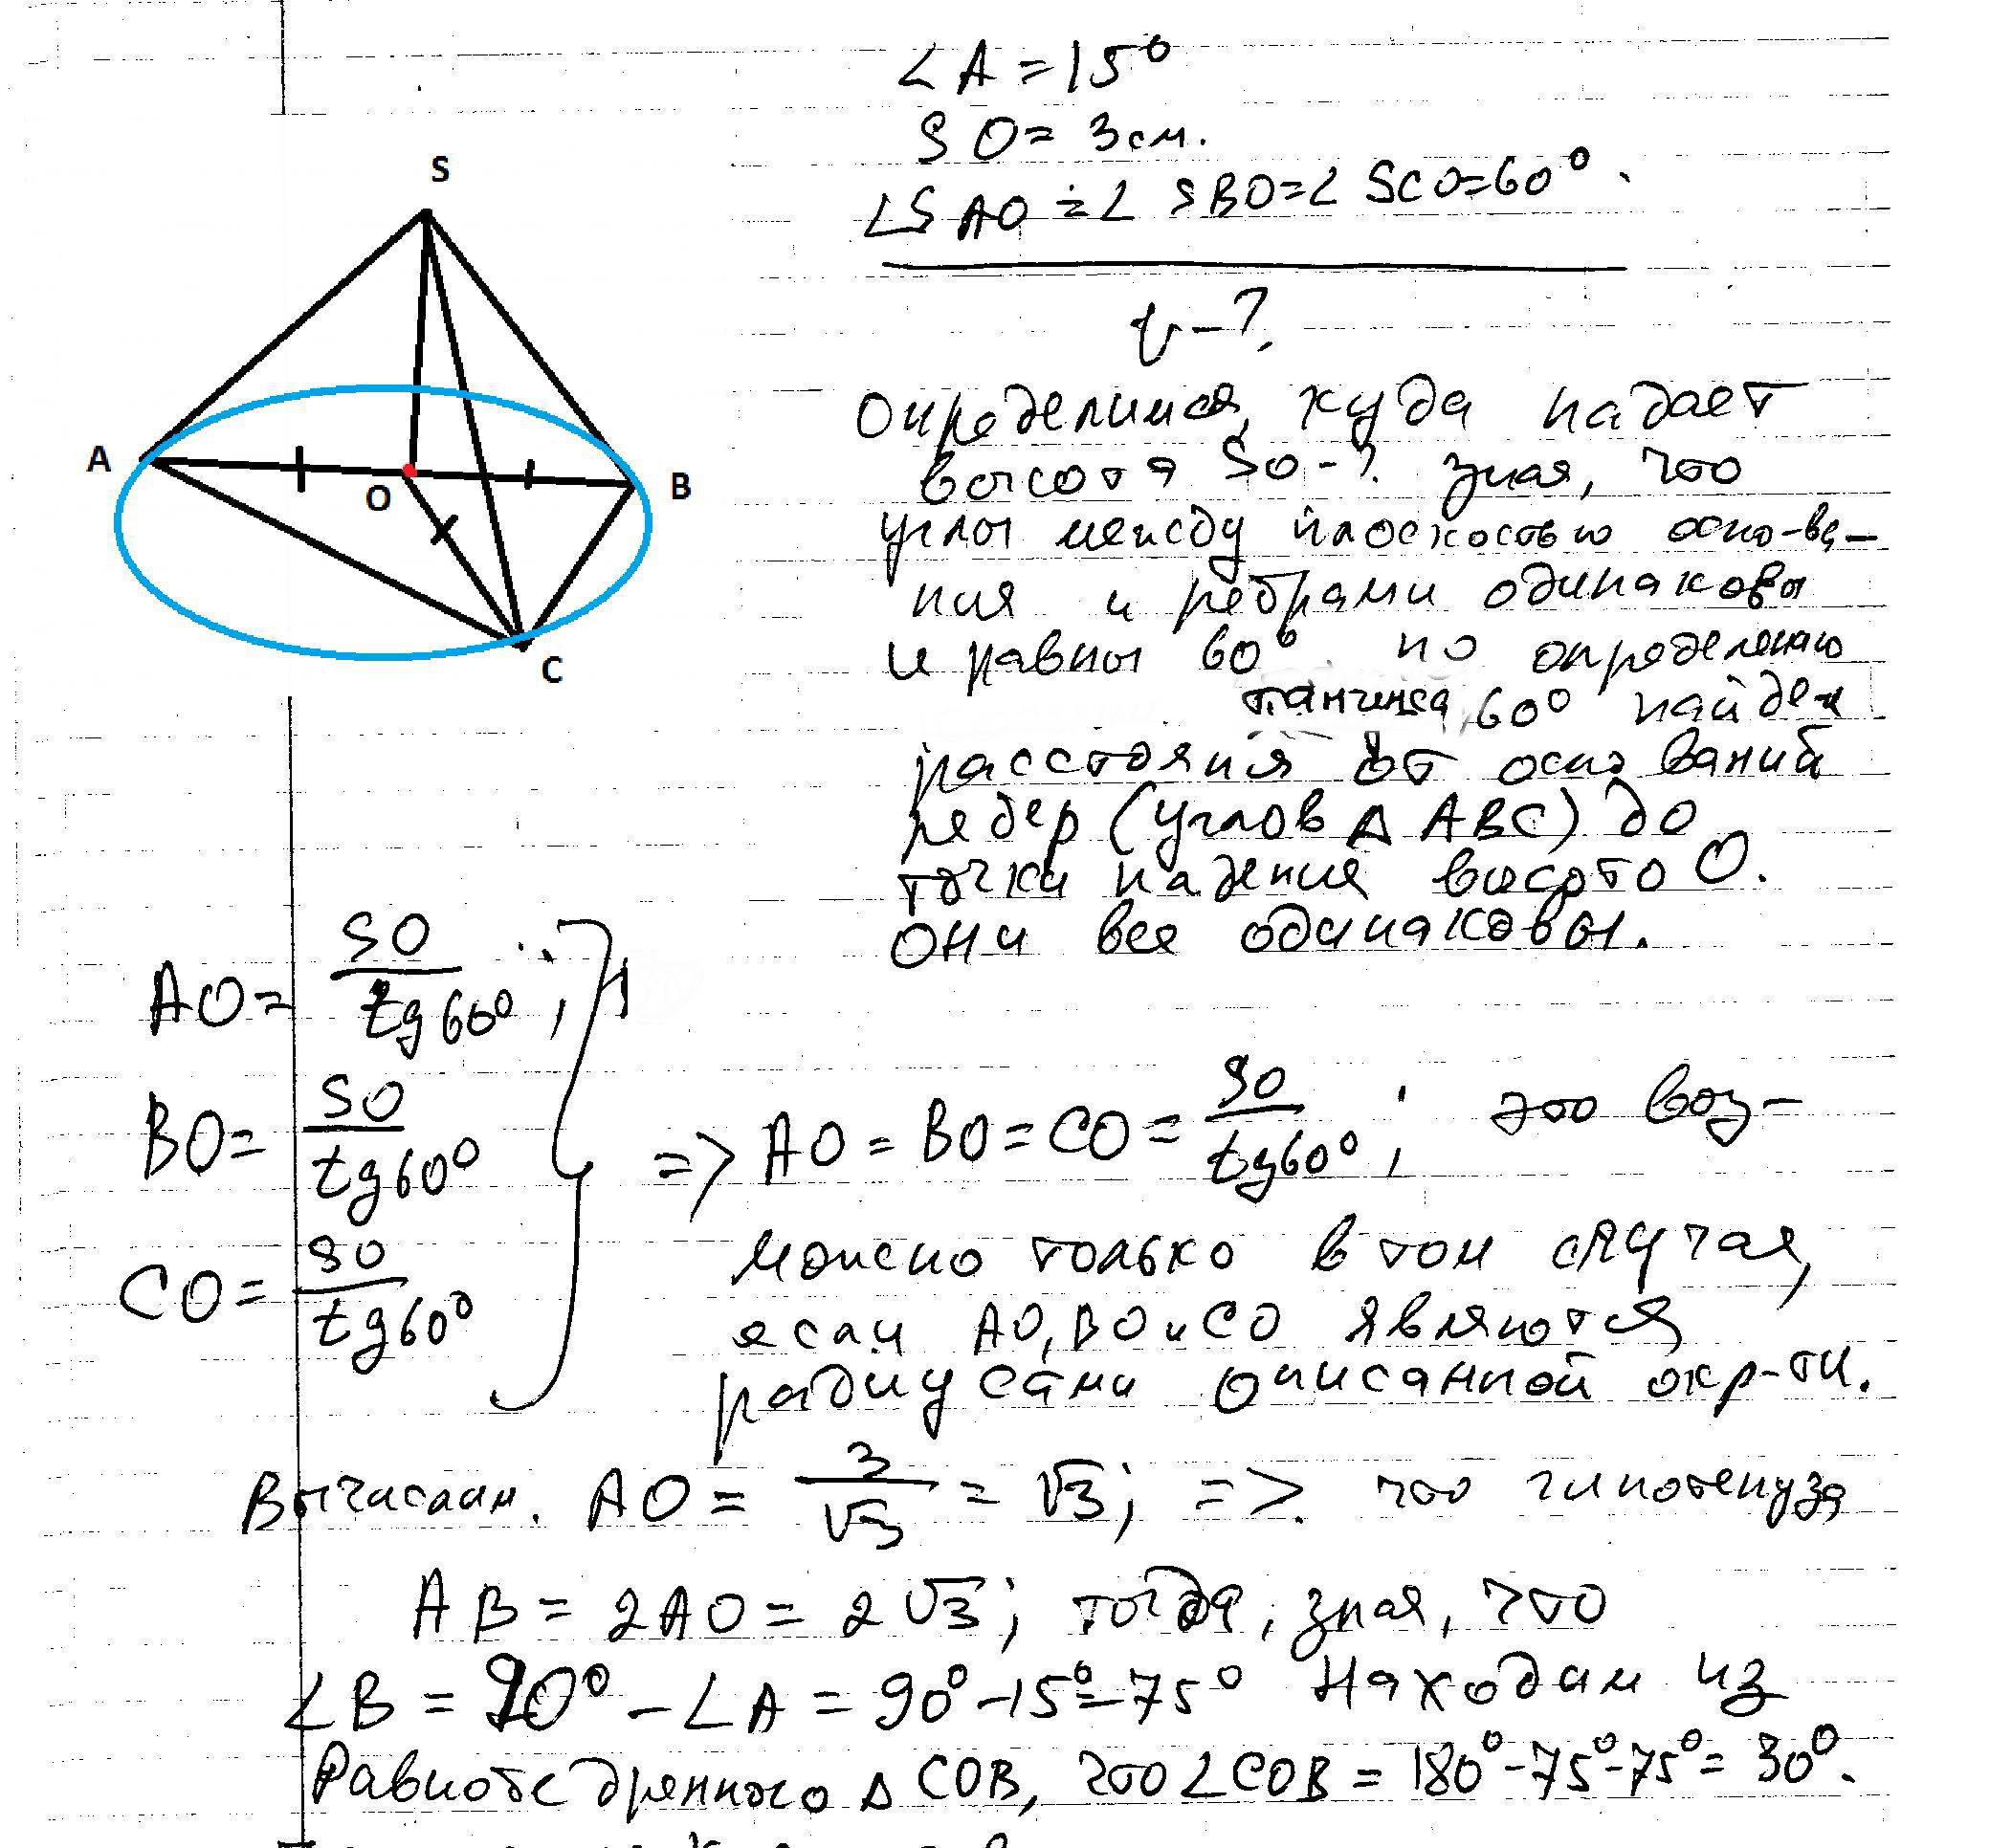 ∠A = 15°
SO = 3 см.
∠SAO = ∠SBO = ∠SCO = 60°.
V-?
S
A
O
B
C
Определимся, куда падает
высота SO-? зная, что
углы между плоскостью осно-ва-
ния и ребрами одинаковы
и равны 60° по определению
тангенса 60° найдем
расстояния от оснований
ребер (углов Δ ABC) до
точки падения высоты O.
Они все одинаковы.
AO = SO/tg60°;
BO = SO/tg60°
CO = SO/tg60°
=> AO = BO = CO = SO/tg60°; это воз-
можно только в том случае,
если AO, BO и CO являются
радиусами описанной окр-ти.
Вычислим. AO = 3/√3 = √3; => что гипотенуза
AB = 2AO = 2√3; тогда, зная, что
∠B = 90° - ∠A = 90° - 15° = 75° Находим из
Равнобедренного Δ COB, что ∠COB = 180° - 75° - 75° = 30°.